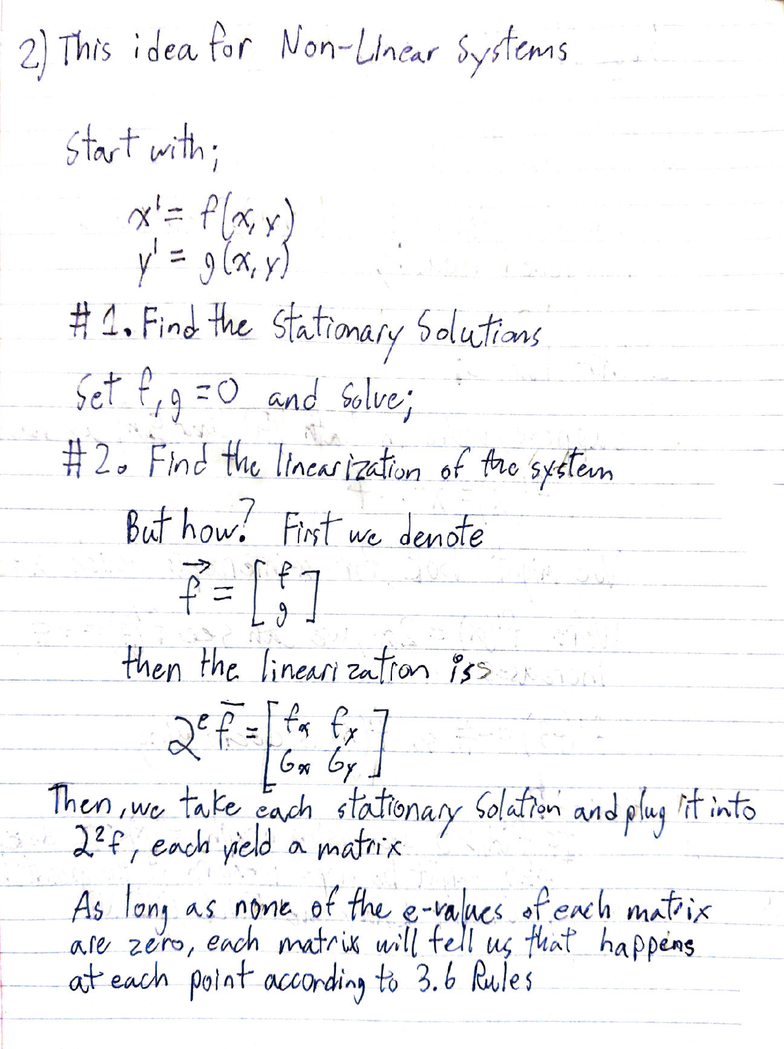 2) This idea for Non-Linear Systems
Start with;
x' = f(x, y)
y' = g(x, y)
#1. Find the Stationary Solutions
Set f, g = 0 and Solve;
#2. Find the linearization of the system
But how? First we denote
f⃗ = [f
g]
then the linearization iss
2^e f̅ = [fx fy
Gx Gy]
Then, we take each stationary Solation and plug it into
2²f, each yield a matrix
As long as none of the e-values of each matrix
are zero, each matrix will tell us that happens
at each point according to 3.6 Rules